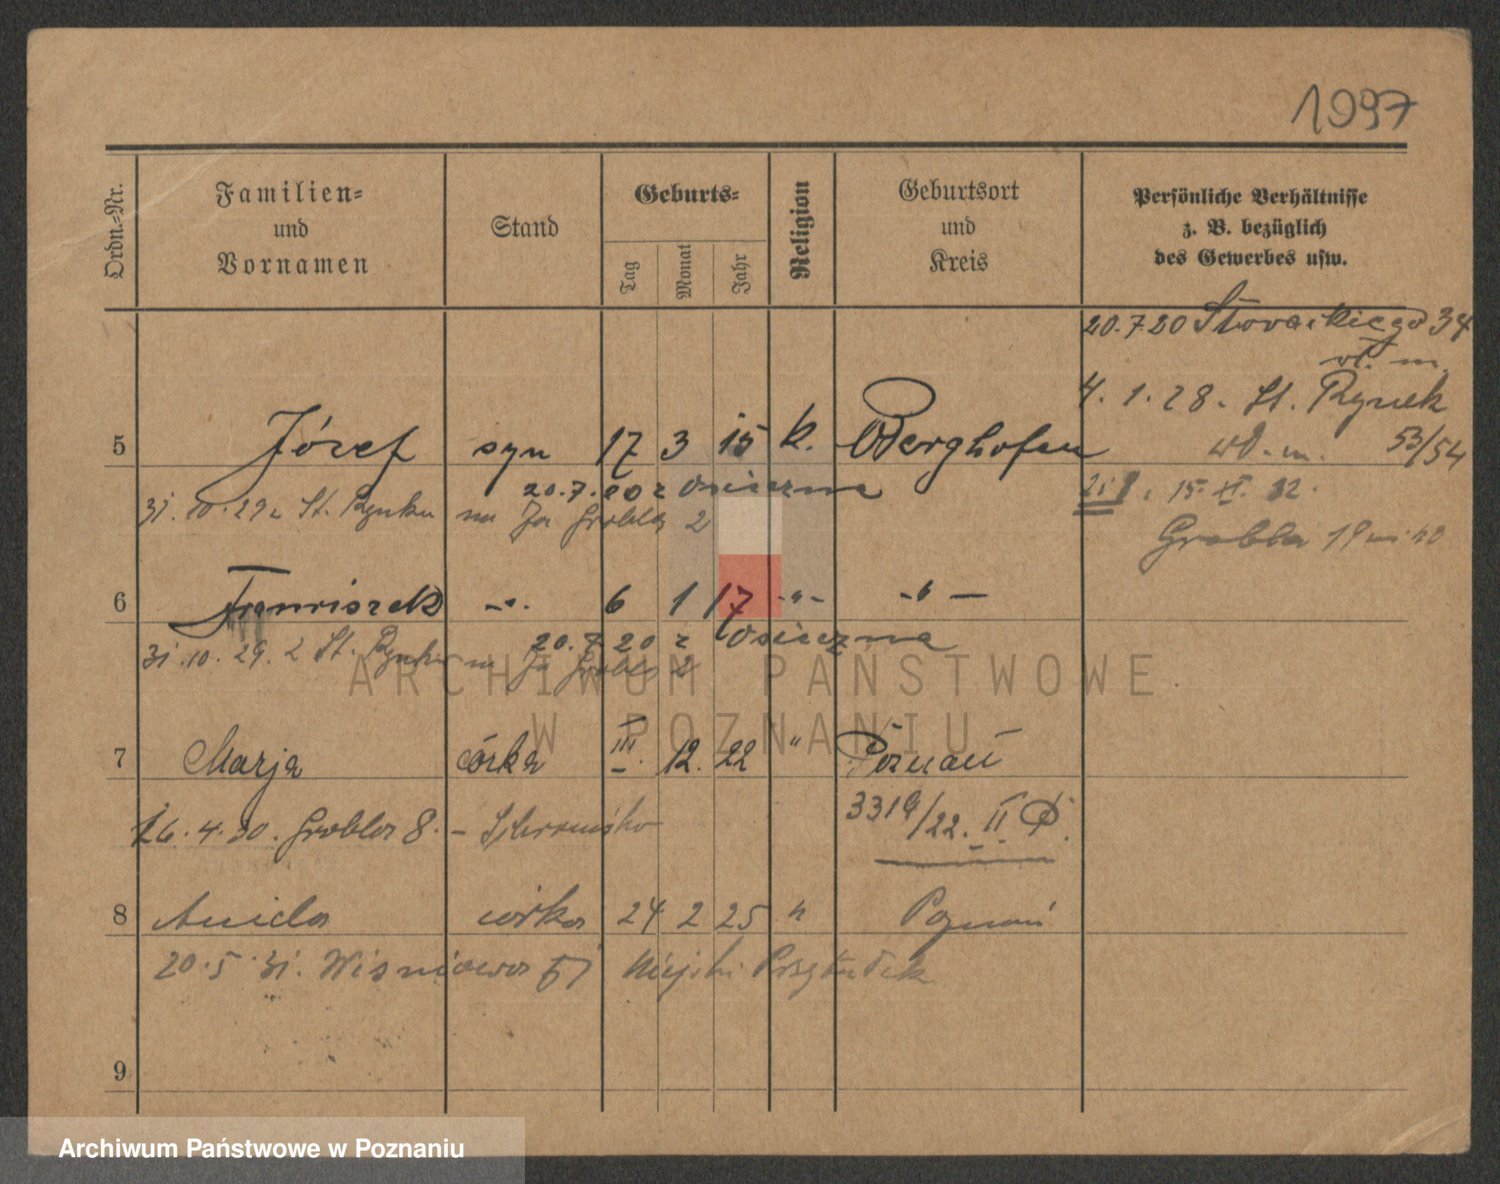 1997
Ordn.-Nr.
Familien-
und
Vornamen
Stand
Geburts-
Tag
Monat
Jahr
Religion
Geburtsort
und
Kreis
Persönliche Verhältnisse
z. B. bezüglich
des Gewerbes usw.
20.7.20 34
4.1.28. St. Rynek
53/54
15. XI. 32.
Grobla 19
5 Józef syn 17 3 15 k. Berghofen
20.7.20 z Osieczna
31.10.29 z St. Rynku na Grobla 2
6 Franciszek -"- 6 1 17 -"- -"-
20.7.20 z Osieczna
31.10.29. z St. Rynku na Grobla 2
7 Marja córka III. 12. 22 " Poznań
3319/22. II
16.4.30. Grobla 8. - Schronisko
8 Aniela córka 24 2 25 " Poznań
20.5.31. Wiśniowa 51 Miejski Przytułek
9
ARCHIWUM PAŃSTWOWE
W POZNANIU
Archiwum Państwowe w Poznaniu